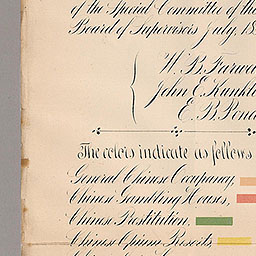 of the Special Committee of the
Board of Supervisors July, 18
W. B. Farwe
John E. Kunkl
E. B. Pond
The colors indicate as follows
General Chinese Occupancy,
Chinese Gambling Houses,
Chinese Prostitution.
Chinese Opium Resorts